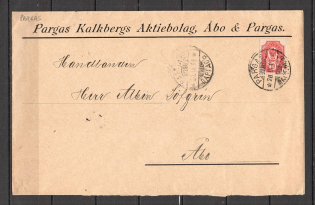 PARGAS
Pargas Kalkbergs Aktiebolag, Åbo & Pargas.
Handlanden
Herr Albin Löfgren
Åbo